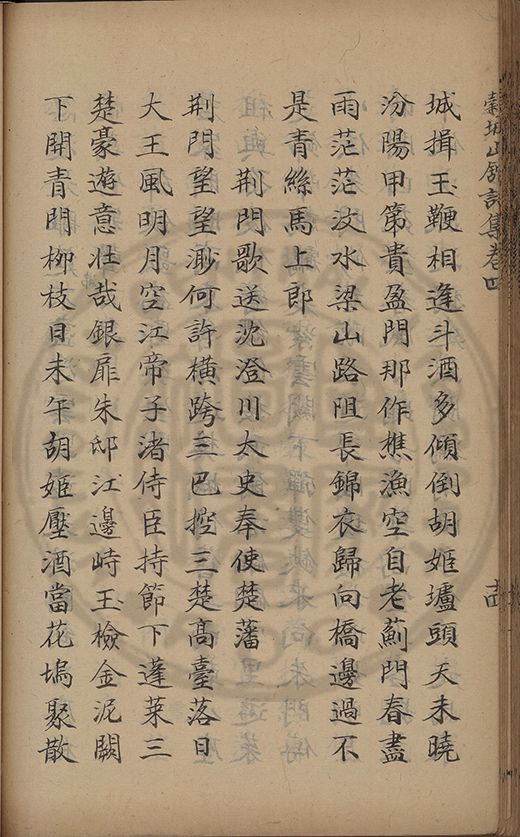 穀城山館詩集卷四
城揖玉鞭相逢斗酒多傾倒胡姬壚頭天未曉
汾陽甲第貴盈門那作樵漁空自老薊門春盡
雨茫茫汶水梁山路阻長錦衣歸向橋邊過不
是青絲馬上郎
荆門歌送沈澄川太史奉使楚藩
荆門望望渺何許橫跨三巴控三楚高臺落日
大王風明月空江帝子渚侍臣持節下蓬萊三
楚豪遊意壯哉銀扉朱邸江邊峙玉檢金泥闕
下開青門柳枝日未午胡姬壓酒當花塢聚散